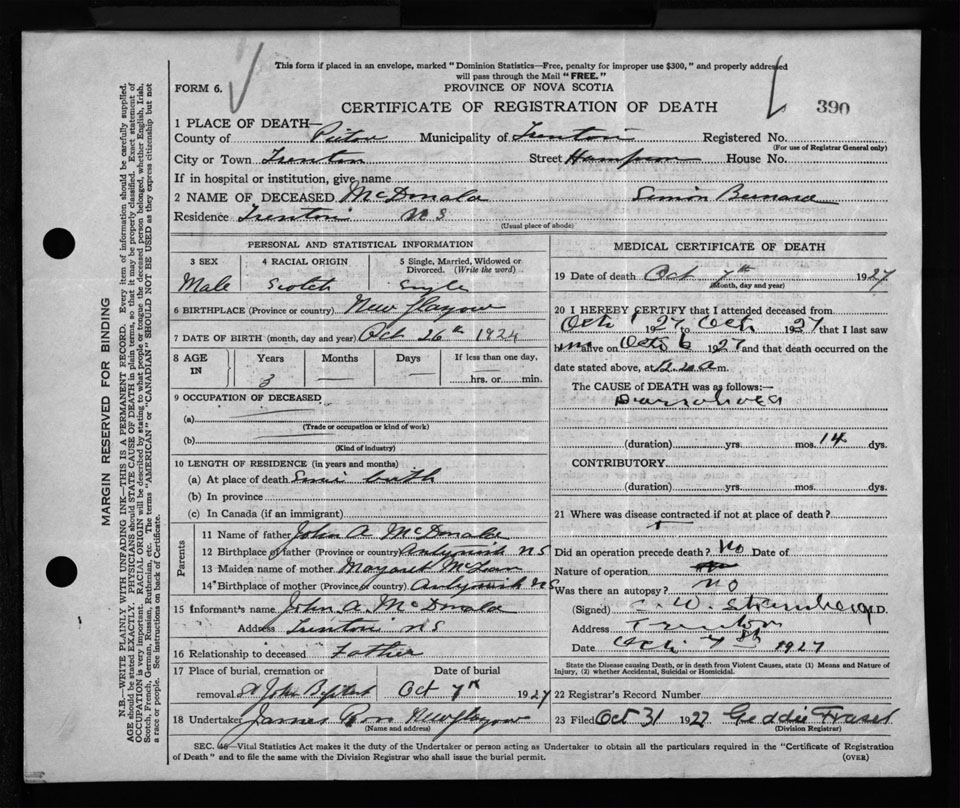 This form if placed in an envelope, marked "Dominion Statistics—Free, penalty for improper use $300," and properly addressed
will pass through the Mail "FREE."
FORM 6.
PROVINCE OF NOVA SCOTIA
CERTIFICATE OF REGISTRATION OF DEATH
390
1 PLACE OF DEATH—
County of Pictou Municipality of Trenton Registered No.
(For use of Registrar General only)
City or Town Trenton Street Hampson House No.
If in hospital or institution, give name
2 NAME OF DECEASED McDonald Simon Bernard
Residence Trenton N S
(Usual place of abode)
PERSONAL AND STATISTICAL INFORMATION
3 SEX 4 RACIAL ORIGIN 5 Single, Married, Widowed or Divorced. (Write the word)
Male Scotch Single
6 BIRTHPLACE (Province or country) New Glasgow
7 DATE OF BIRTH (month, day and year) 26th 1924
8 AGE IN Years Months Days If less than one day,
3 — — hrs. or min.
9 OCCUPATION OF DECEASED
(a)
(Trade or occupation or kind of work)
(b)
(Kind of industry)
10 LENGTH OF RESIDENCE (in years and months)
(a) At place of death Since birth
(b) In province
(c) In Canada (if an immigrant)
Parents
11 Name of father John A. McDonald
12 Birthplace of father (Province or country) Antigonish N S
13 Maiden name of mother Margaret McLean
14 Birthplace of mother (Province or country) Antigonish N S
15 Informant's name John A. McDonald
Address Trenton N S
16 Relationship to deceased Father
17 Place of burial, cremation or removal St John Baptist Date of burial Oct 7th 1927
18 Undertaker James Ross New Glasgow
(Name and address)
MEDICAL CERTIFICATE OF DEATH
19 Date of death Oct 7th 1927
(Month, day and year)
20 I HEREBY CERTIFY that I attended deceased from
Oct 1 1927 to Oct 1927 that I last saw
him alive on Oct 6 1927 and that death occurred on the
date stated above, at a m.
The CAUSE of DEATH was as follows:—
Diarrhoea
(duration) yrs. mos. 14 dys.
CONTRIBUTORY
(duration) yrs. mos. dys.
21 Where was disease contracted if not at place of death?
Did an operation precede death? No Date of
Nature of operation
Was there an autopsy? no
(Signed) C. W. M.D.
Address Trenton
Date Oct 7th 1927
State the Disease causing Death, or in death from Violent Causes, state (1) Means and Nature of
Injury, (2) whether Accidental, Suicidal or Homicidal.
22 Registrar's Record Number
23 Filed Oct 31 1927 Geddie Fraser
(Division Registrar)
SEC. 46—Vital Statistics Act makes it the duty of the Undertaker or person acting as Undertaker to obtain all the particulars required in the "Certificate of Registration
of Death" and to file the same with the Division Registrar who shall issue the burial permit. (OVER)
MARGIN RESERVED FOR BINDING
N.B.—WRITE PLAINLY WITH UNFADING INK—THIS IS A PERMANENT RECORD. Every item of information should be carefully supplied.
AGE should be stated EXACTLY. PHYSICIANS should STATE CAUSE OF DEATH in plain terms, so that it may be properly classified. Exact statement of
OCCUPATION is very important. RACIAL ORIGIN will be described by stating to what people or race the deceased person belonged, whether English, Irish,
Scotch, French, German, Russian, Ruthenian, etc. The terms "AMERICAN" or "CANADIAN" SHOULD NOT BE USED as they express citizenship but not
a race or people. See instructions on back of Certificate.